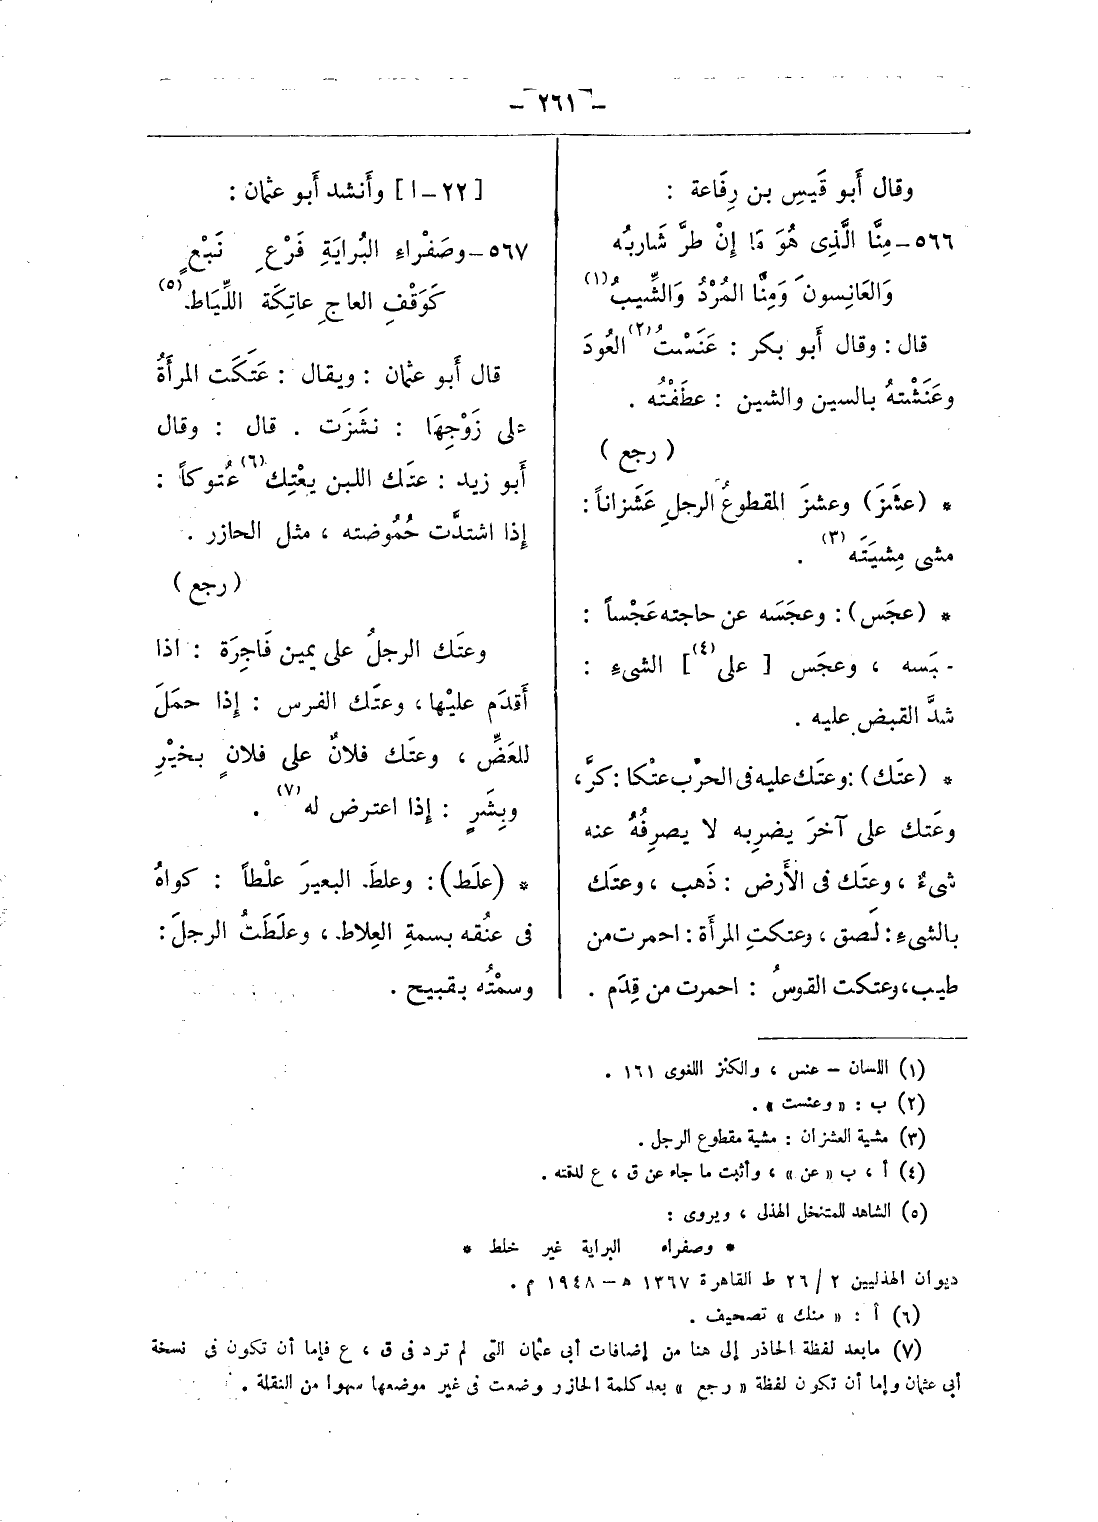 – ٢٦١ –
وقال أَبو قَيسِ بن رِفَاعة :
٥٦٦ – مِنَّا الَّذِى هُوَ مَا إِنْ طرَّ شَاربُه
وَالعَانِسونَ وَمِنَّا المُرْدُ وَالشِّيبُ (١)
قال : وقال أَبو بكر : عَنَسْتُ (٢) العُودَ
وعَنَشْتهُ بالسين والشين : عطَفْتُه .
( رجع )
* (عشَزَ) وعشزَ المقطوعُ الرجلِ عَشَزاناً :
مشى مِشيَتَه (٣) .
* (عجَس) : وعجَسَه عن حاجته عَجْساً :
حبَسه ، وعجَس [ على (٤) ] الشىءِ :
شدَّ القبض عليه .
* (عتَك) : وعتَك عليه فى الحرْب عتْكا : كرَّ ،
وعَتك على آخرَ يضرِبه لا يصرِفُهُ عنه
شىءٌ ، وعتَك فى الأَرض : ذَهب ، وعتَك
بالشىءِ : لَصق ، وعتكتِ المرأَة : احمرت من
طيب ، وعتكت القوسُ : احمرت من قِدَم .
[ ٢٢ – ا ] وأَنشد أَبو عثمان :
٥٦٧ – وصَفْراءِ البُرايَةِ فَرْعِ نَبْعٍ
كَوَقْفِ العاجِ عاتِكَة اللِّيَاط (٥)
قال أَبو عثمان : ويقال : عَتَكَت المرأَةُ
على زَوْجِهَا : نشَزَت . قال : وقال
أَبو زيد : عتَك اللبن يعْتِك (٦) عُتوكاً :
إِذا اشتدَّت حُمُوضته ، مثل الحازر .
( رجع )
وعتَك الرجلُ على يمين فَاجِرَة : اذا
أَقدَم عليْها ، وعتَك الفرس : إِذا حمَلَ
للعَضِّ ، وعتَك فلانٌ على فلانٍ بخيْرِ
وبِشَرٍ : إِذا اعترض له (٧) .
* (علَط) : وعلطَ البعيرَ علْطاً : كواهُ
فى عنُقه بسمةِ العِلاط ، وعلَطَتُ الرجلَ :
وسمْتُه بقبيح .
(١) اللسان – عنس ، والكنز اللغوى ١٦١ .
(٢) ب : « وعنست » .
(٣) مشية العشزان : مشية مقطوع الرجل .
(٤) أ ، ب « عن » ، وأثبت ما جاء عن ق ، ع لدقته .
(٥) الشاهد للمتنخل الهذلى ، ويروى :
* وصفراء البراية غير خلط *
ديوان الهذليين ٢ / ٢٦ ط القاهرة ١٣٦٧ ه – ١٩٤٨ م .
(٦) أ : « منك » تصحيف .
(٧) مابعد لفظة الحاذر إلى هنا من إضافات أبى عثمان التى لم ترد فى ق ، ع فإما أن تكون فى نسخة
أبى عثمان وإما أن تكون لفظة « رجع » بعد كلمة الحازر وضعت فى غير موضعها سهوا من النقلة .